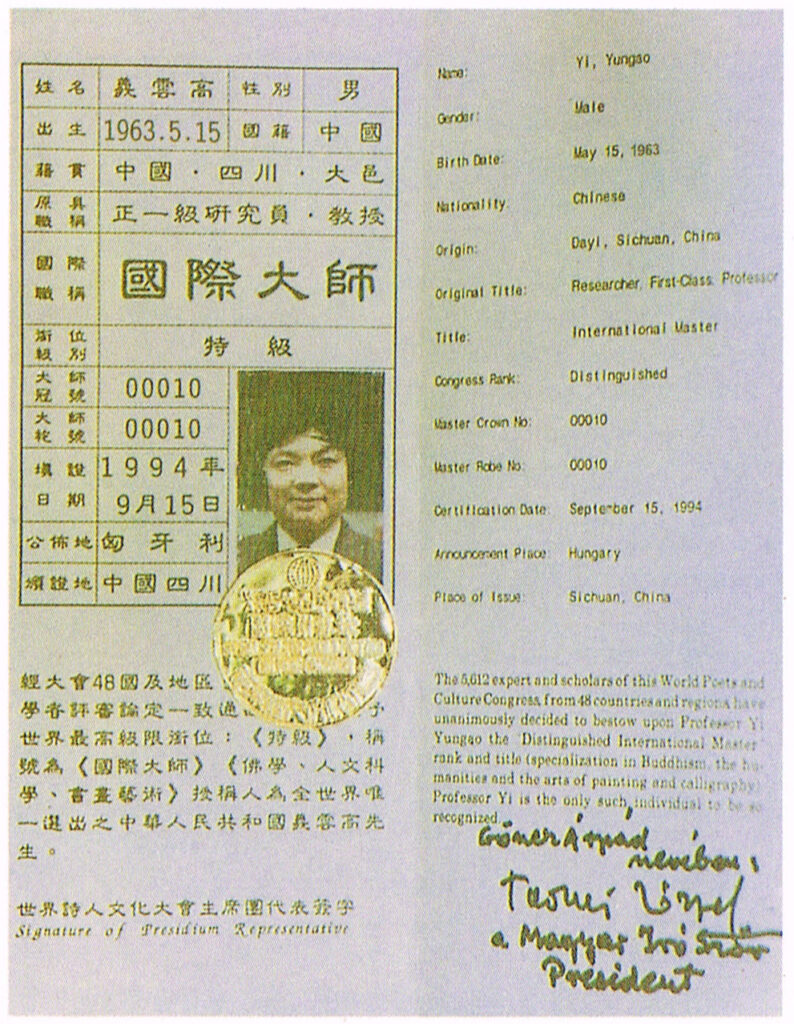 姓名 義雲高 性別 男
出生 1963.5.15 國籍 中國
籍貫 中國·四川·大邑
原具職稱 正一級研究員·教授
國際職稱 國際大師
銜位級別 特級
大師冠號 00010
大師袍號 00010
填證日期 1994年9月15日
公佈地 匈牙利
填證地 中國四川
經大會48國及地區
學者評審論定一致通
世界最高級限銜位：《特級》，稱
號為《國際大師》《佛學、人文科
學、書畫藝術》授稱人為全世界唯
一選出之中華人民共和國義雲高先
生。
世界詩人文化大會主席團代表簽字
Signature of Presidium Representative
Name: Yi, Yungao
Gender: Male
Birth Date: May 15, 1963
Nationality: Chinese
Origin: Dayi, Sichuan, China
Original Title: Researcher, First-Class, Professor
Title: International Master
Congress Rank: Distinguished
Master Crown No: 00010
Master Robe No: 00010
Certification Date: September 15, 1994
Announcement Place: Hungary
Place of Issue: Sichuan, China
The 5,612 expert and scholars of this World Poets and
Culture Congress, from 48 countries and regions have
unanimously decided to bestow upon Professor Yi
Yungao the "Distinguished International Master"
rank and title (specialization in Buddhism, the hu-
manities and the arts of painting and calligraphy)
Professor Yi is the only such individual to be so
recognized.
Árpád
nevében:
a Magyar
President